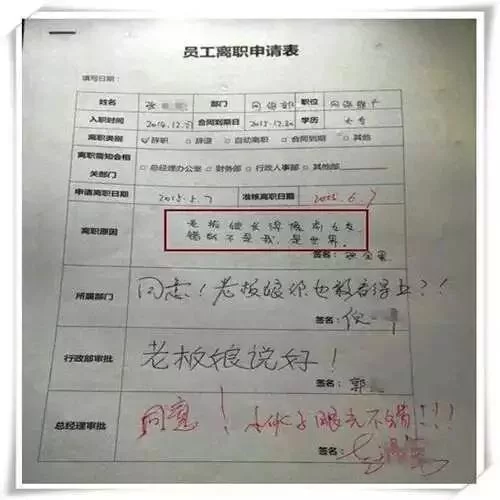 员工离职申请表
填写日期:
姓名 张 部门 网络部 职位 网络推广
入职时间 2014.12.21 合同到期日 2015.12.20 学历 大专
离职类别 ☑辞职 □辞退 □自动离职 □合同到期 □其他
离职需知会相关部门 □总经理办公室 □财务部 □行政人事部 □其他部
申请离职日期 2015.5.7 准核离职日期 2015.6.7
离职原因 老板娘长得像前女友,
错的不是我,是世界。
签名:
所属部门 同意!老板娘你也敢看得上?!
签名: 倪
行政部审批 老板娘说好!
签名: 郭
总经理审批 同意! 小伙子眼光不错!!!
签名: